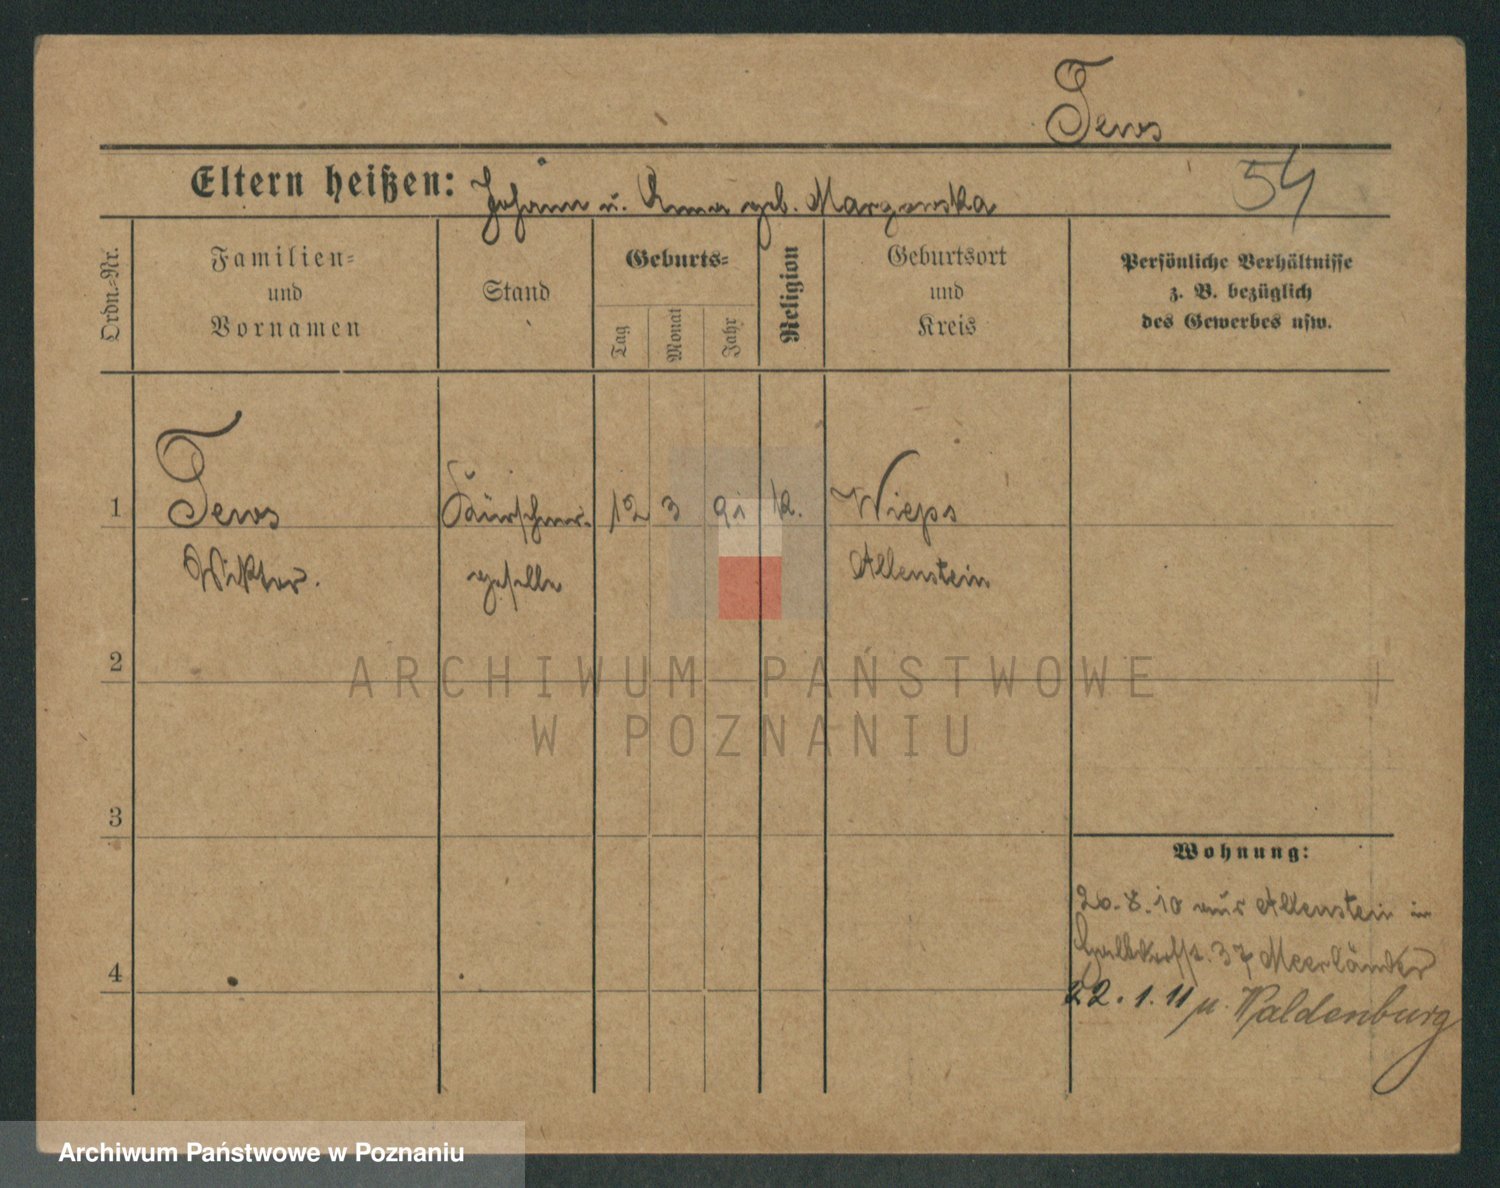 Tews
54
Eltern heißen: Johann u. Anna geb. Margowska
Ordn.-Nr.
Familien-
und
Vornamen
Stand
Geburts-
Tag
Monat
Jahr
Religion
Geburtsort
und
Kreis
Persönliche Verhältnisse
z. B. bezüglich
des Gewerbes usw.
1 Tews Kürschner- 12 3 91 k. Wieps
Viktor. geselle Allenstein
2
ARCHIWUM PAŃSTWOWE
W POZNANIU
3
Wohnung:
20.8.10 aus Allenstein in
37
4
22.1.11 n. Waldenburg
Archiwum Państwowe w Poznaniu